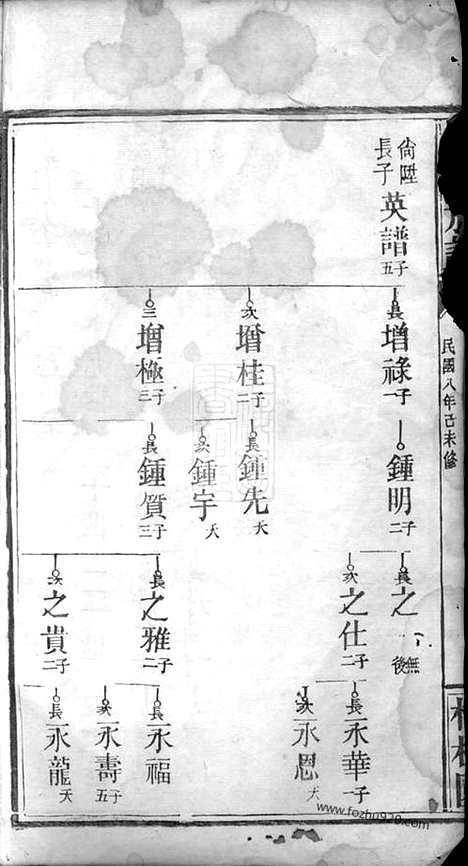 尙陞長子
英譜 五子
長 增祿 一子
次 增桂 二子
三 增極 三子
鍾明 二子
長 鍾先 夭
次 鍾宇 夭
長 鍾質 三子
長 之 無後
次 之仕 二子
長 之雅 二子
次 之貴 二子
長 永華 一子
次 永恩 夭
長 永福
次 永壽 五子
長 永龍 夭
民國八年己未修
www.fozhu920.com